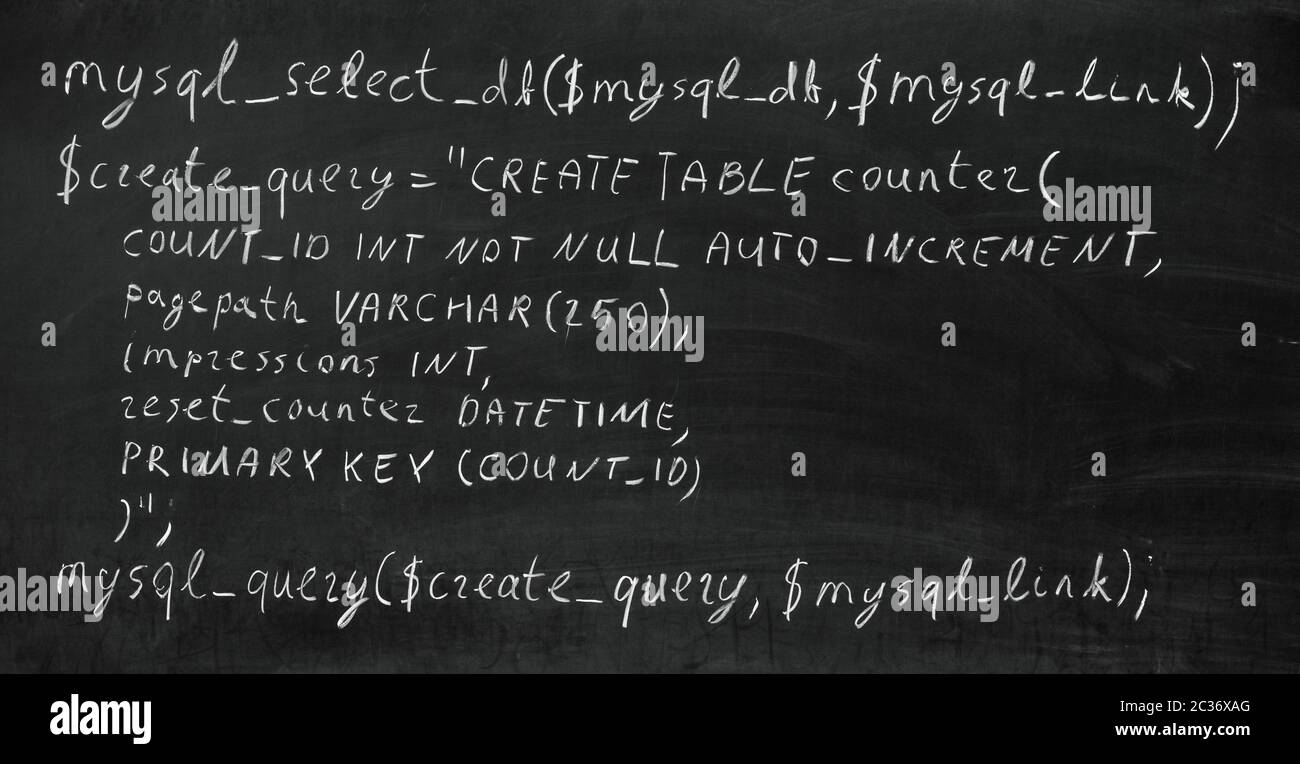 mysql_select_db($mysql_db, $mysql_link);
$create_query="CREATE TABLE counter(
COUNT_ID INT NOT NULL AUTO_INCREMENT,
pagepath VARCHAR(250),
impressions INT,
reset_counter DATETIME,
PRIMARY KEY (COUNT_ID)
)";
mysql_query($create_query, $mysql_link);
alamy
Image ID: 2C36XAG
www.alamy.com